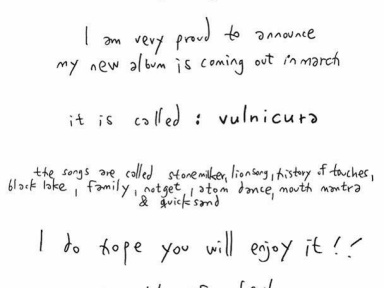 I am very proud to announce
my new album is coming out in march
it is called : vulnicura
the songs are called stonemilker, lionsong, history of touches,
black lake, family, notget, atom dance, mouth mantra
& quicksand
I do hope you will enjoy it !!